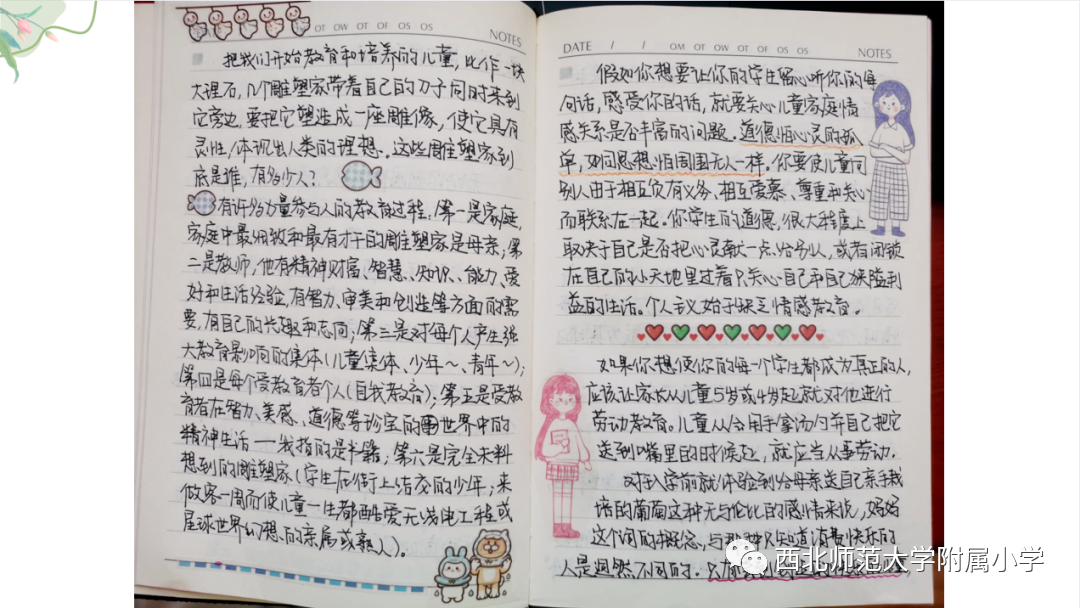 OT OW OT OF OS OS
NOTES
把我们开始教育和培养的儿童，比作一块
大理石，几个雕塑家带着自己的刀子同时来到
它旁边，要把它塑造成一座雕像，使它具有
灵性，体现出人类的理想。这些雕塑家到
底是谁，有多少人？
有许多力量参与人的教育过程，第一是家庭，
家庭中最细致和最有才干的雕塑家是母亲；第
二是教师，他有精神财富、智慧、知识、能力、爱
好和生活经验，有智力、审美和创造等方面的需
要，有自己的兴趣和志向；第三是对每个人产生强
大教育影响的集体（儿童集体、少年～、青年～）；
第四是每个受教育者个人（自我教育）；第五是受教
育者在智力、美感、道德等珍宝的世界中的
精神生活——我指的是书籍；第六是完全未料
想到的雕塑家（学生在街上结交的少年；来
做客一周而使儿童一生都酷爱无线电工程或
星球世界幻想的亲属或熟人）。
DATE / /
OM OT OW OT OF OS OS
NOTES
假如你想要让你的学生留心听你的每
句话，感受你的话，就要关心儿童家庭情
感关系是否丰富的问题。道德怕心灵的孤
单，如同思想怕周围无人一样。你要使儿童同
别人由于相互负有义务、相互爱慕、尊重和关心
而联系在一起。你学生的道德，很大程度上
取决于自己是否把心灵献一点给别人，或者闭锁
在自己的小天地里过着只关心自己和自己狭隘利
益的生活。个人主义始于缺乏情感教育。
如果你想使你的每一个学生都成为真正的人，
应该让家长从儿童5岁或4岁起就对他进行
劳动教育。儿童从会用手拿汤勺并自己把它
送到嘴里的时候起，就应当从事劳动。
对于入学前就体验到给母亲送自己亲手栽
培的葡萄这种无与伦比的感情来说，妈妈
这个词的概念，与那种只知道消费快乐的
人是迥然不同的。
西北师范大学附属小学